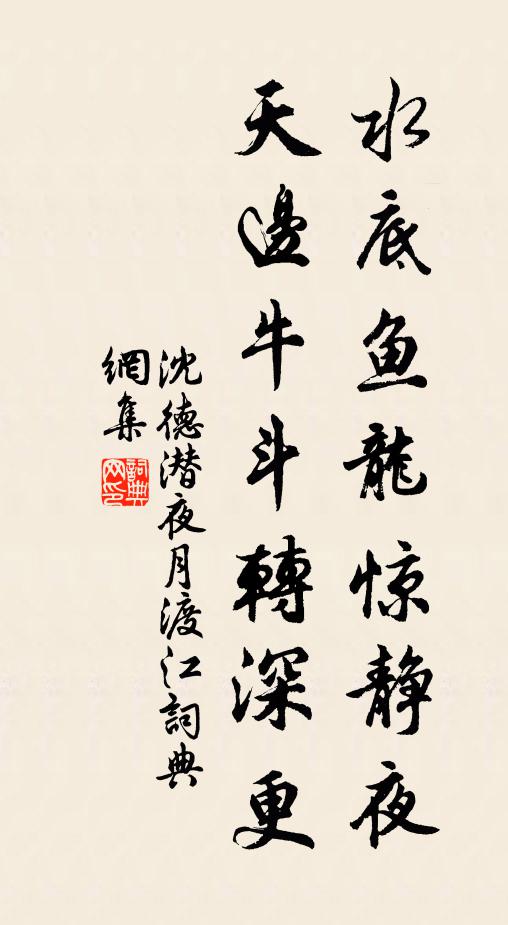 水底鱼龍惊静夜
天邊牛斗轉深更
沈德潜夜月渡江詞典
網集
詞典
网印